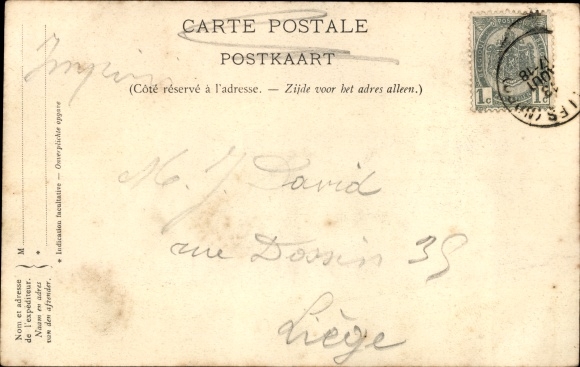 CARTE POSTALE
POSTKAART
(Côté réservé à l'adresse. — Zijde voor het adres alleen.)
1c 1c
13
AOUT
17-18
M. J. David
rue Dossin 35
Liège
Nom et adresse
de l'expéditeur.
Naam en adres
van den afzender.
M
*
* Indication facultative — Onverplichte opgave